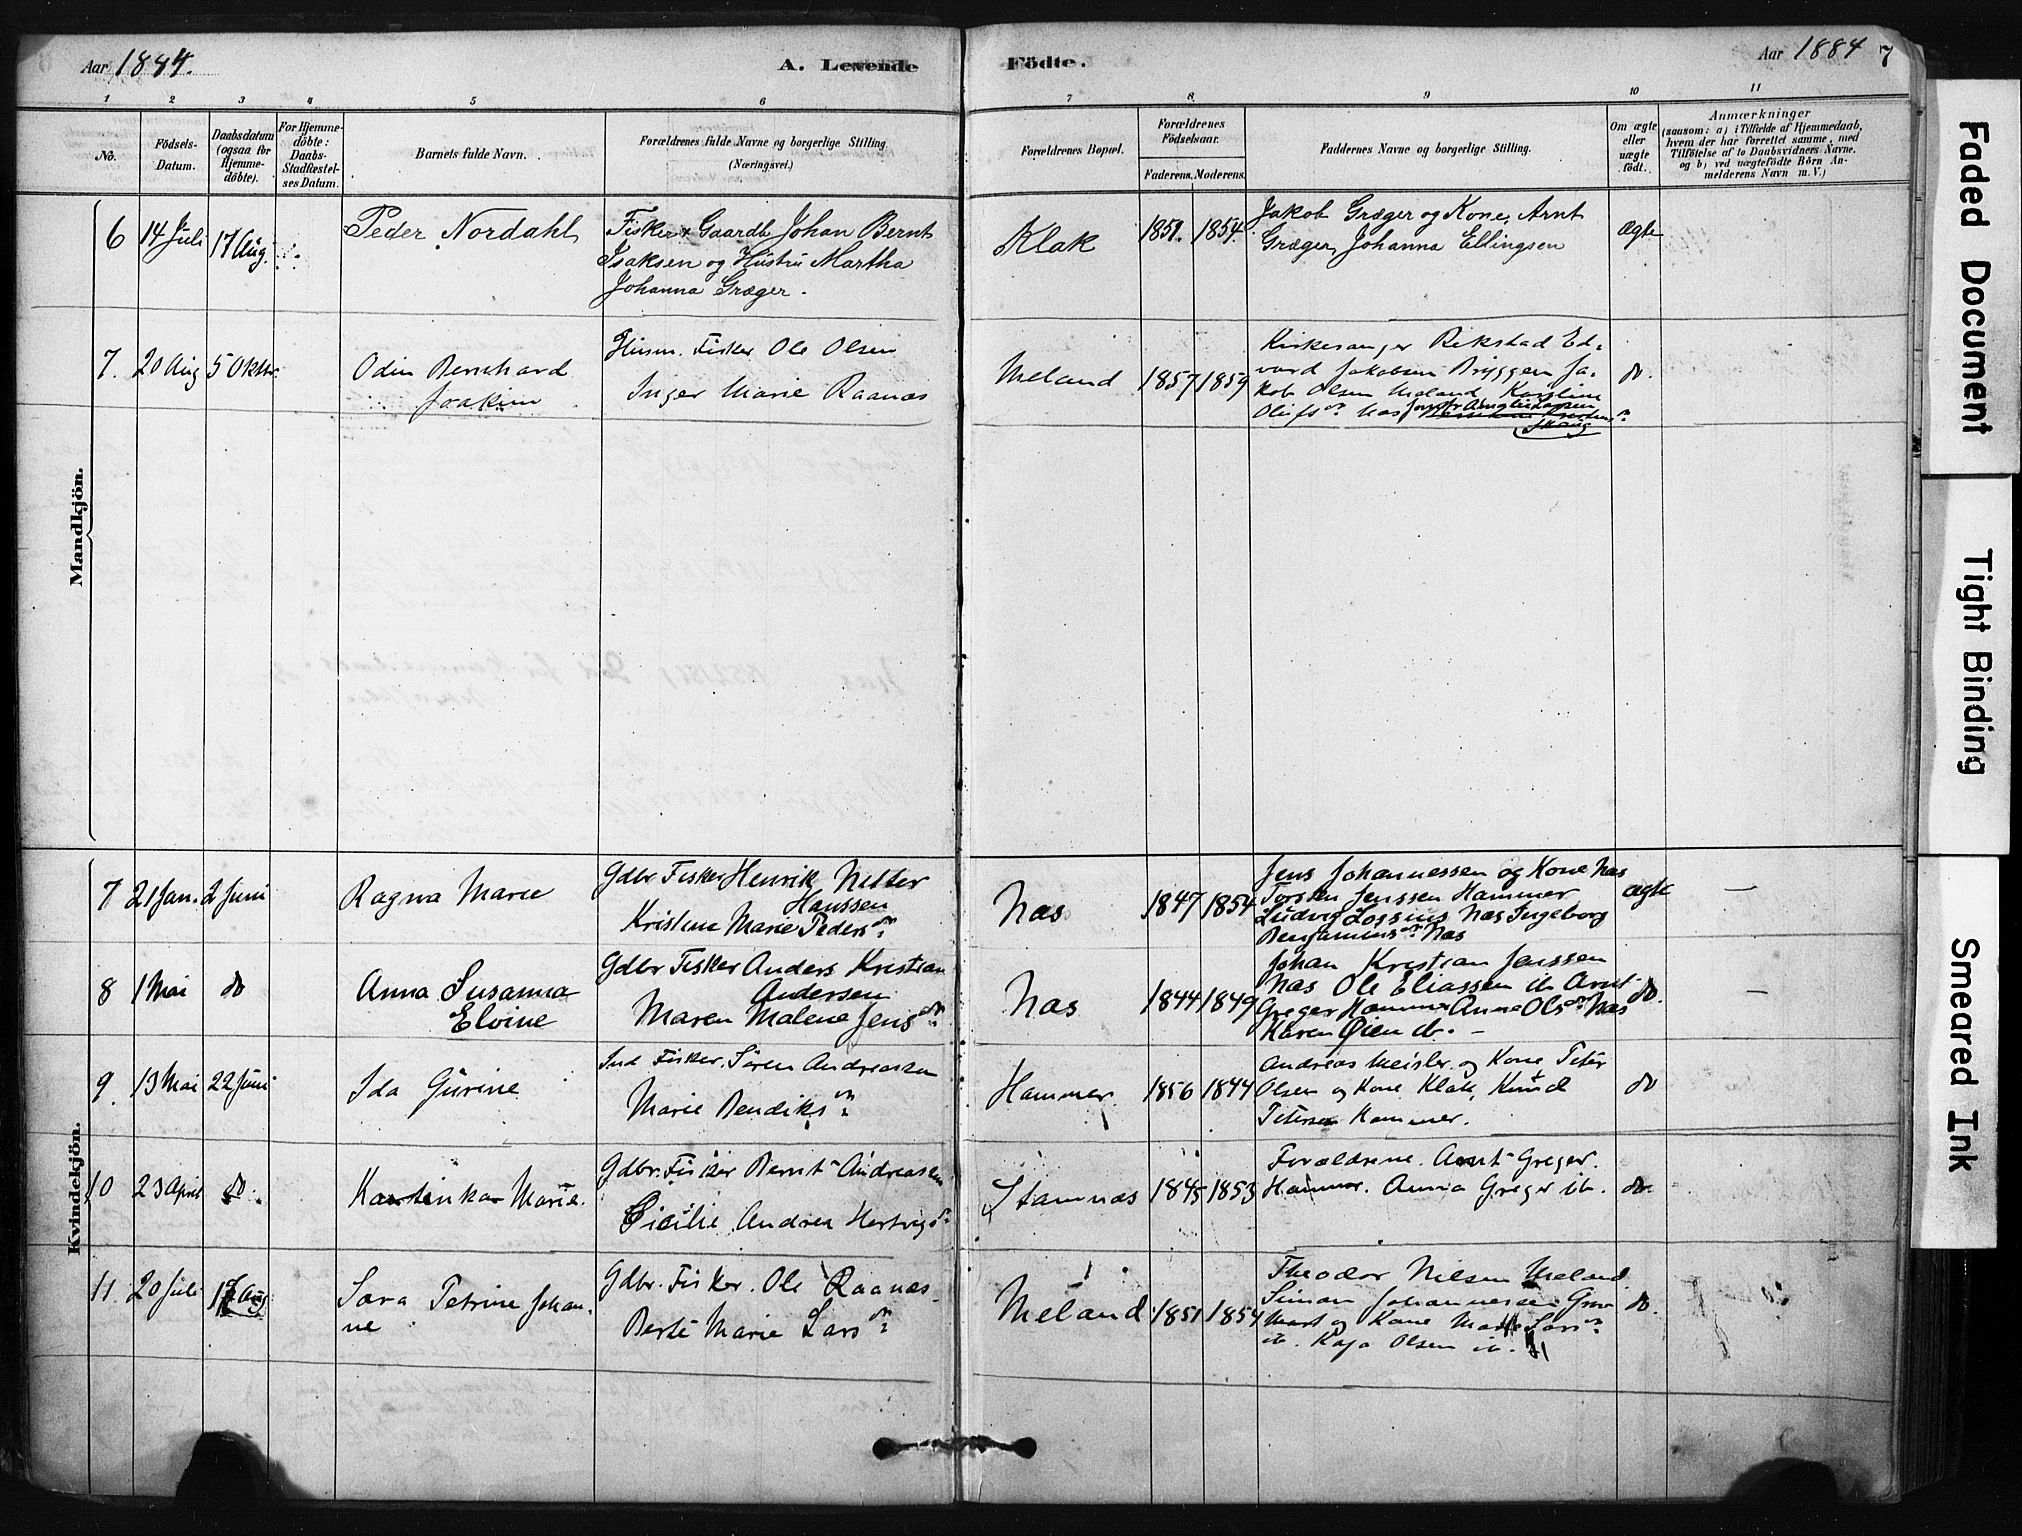 Aar 1884.
A. Levende
Födte.
Aar 1884 7
1 2 3 4 5 6 7 8. 9 10 11
No.
Födsels-Datum.
Daabsdatum (ogsaa for Hjemme-döbte).
For Hjemme-döbte: Daabs-Stadfæstel-ses Datum.
Barnets fulde Navn.
Forældrenes fulde Navne og borgerlige Stilling
(Næringsvei.)
Forældrenes Bopæl.
Forældrenes Födselsaar.
Faderens. Moderens.
Faddernes Navne og borgerlige Stilling.
Om ægte eller uægte födt.
Anmærkninger
(saasom: a) i Tilfælde af Hjemmedaab,
hvem der har forrettet samme, med
Tilföielse af to Daabsvidners Navne.
og b) ved uægtefödte Börn An-
melderens Navn m. V.)
Mandkjön.
6 14 Juli 17 Aug. Peder Nordahl Fisker & Gaardb Johan Bernt
Isaksen og Hustru Martha
Johanna Græger.
Klak 1851. 1854. Jakob Græger og Kone, Arnt
Græger, Johanna Ellingsen
ægte
7. 20 Aug 5 Oktbr. Odin Bernhard
Joakim
Husm. Fisker Ole Olsen
Inger Marie Raanæs
Meland 1857 1859 Kirkesanger Rekstad Ed-
vard Jakobsen Bryggen Ja-
kob Olsen Meland Karoline
Olufsdn Næs
Skaug
do.
Kvindekjön.
7 21 Jan. 2 Juni Ragna Marie Gdbr Fisker Henrik Netter
Hanssen
Kristine Marie Pedersdn
Næs 1847 1854 Jens Johannessen og Kone Næs
Torsten Jenssen Hammer
Ludvig Lossius Næs Ingeborg
Benjaminsdn Næs
ægte —
8 1 Mai do Anna Susanna
Elvine
Gdbr Fisker Anders Kristian
Andersen
Maren Malene Jensdn
Næs 1844 1849 Johan Kristian Jenssen
Næs Ole Eliassen ib Arnt
Greger Hammer Anne Olsdn Næs
Karen Øien do. —
do. —
9. 13 Mai 22 Juni Ida Gurine Ind Fisker. Sören Andreassen
Marie Bendiksdn
Hammer. 1856 1844 Andreas Meisler og Kone Peter
Olsen og Kone Klak, Knud
Petersen Hammer.
do
10 23 April do. Katinka Marie. Gdbr. Fisker Bernt Andreassen
Cicilie Andrea Hertvigsdn
Stamnæs 1845 1853 Forældrene. Arnt Greger.
Hammer. Anna Greger ib.
do.
11. 20 Juli 17 Aug Sara Petrine Johan-
ne
Gdbr. Fisker. Ole Raanæs
Berte Marie Larsdn
Meland 1851 1854 Theodor Nilsen Meland
Simon Johannessen
og Kone Larsdn
ib. Kaja Olsen ib.
do.
Faded Document
Tight Binding
Smeared Ink